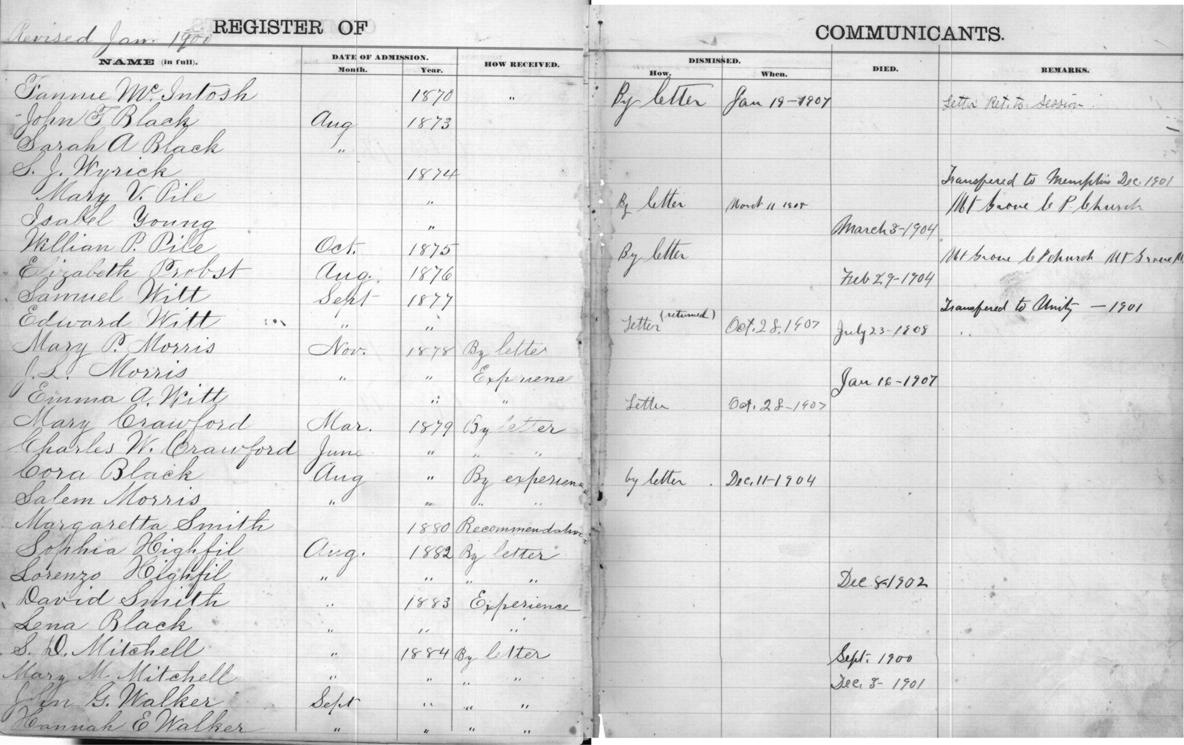 Revised Jan. 1900
REGISTER OF COMMUNICANTS.
NAME (in full). DATE OF ADMISSION. HOW RECEIVED. DISMISSED. DIED. REMARKS.
Month. Year. How. When.
Fannie Mc Intosh 1870 " By letter Jan 19-1907 Letter Ret. to Session
John F Black Aug 1873
Sarah A Black "
S. J. Wyrick 1874 Transfered to Memphis Dec. 1901
Mary V. Pile " By letter 11 Mt Grove C P Church
Isabel Young " March 3-1904
Willian P. Pile Oct. 1875 By letter Mt Grove C P church Mt Grove
Elizabeth Probst Aug. 1876 Feb 29-1904
Samuel Witt Sept 1877 Transfered to Unity - 1901
Edward Witt " " Letter (returned) Oct. 28, 1907 July 23-1908
Mary P. Morris Nov. 1878 By letter
Morris " " Experience Jan 16-1907
Emma A. Witt " " Letter Oct. 28-1907
Mary Crawford Mar. 1879 By letter
Charles W. Crawford June " " "
Cora Black Aug " By experience by letter Dec. 11-1904
Salem Morris " " " "
Margaretta Smith 1880 Recommendation
Sophia Highfil Aug. 1882 By letter
Lorenzo Highfil " " " " Dec 8-1902
David Smith " 1883 Experience
Lena Black " " "
S. D. Mitchell " 1884 By letter Sept. 1900
Mary M. Mitchell " " " " Dec. 3- 1901
John G. Walker Sept " " "
Hannah E Walker " " " "